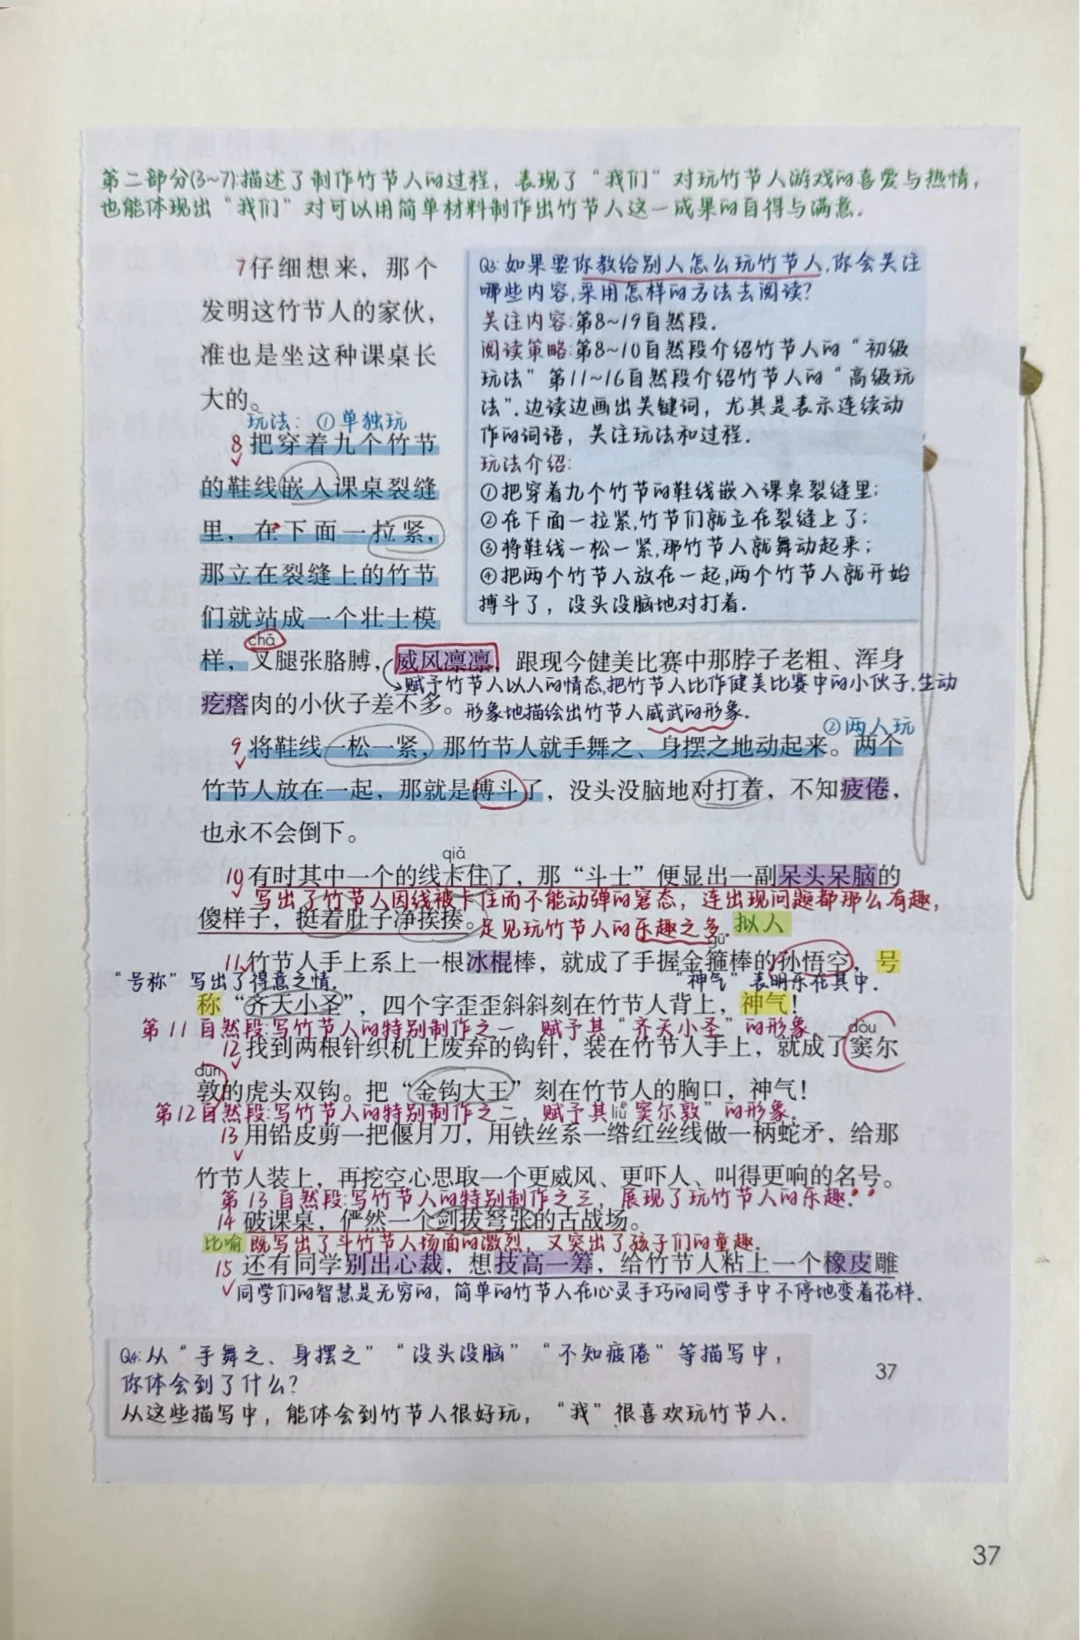 第二部分(3~7):描述了制作竹节人的过程，表现了“我们”对玩竹节人游戏的喜爱与热情，
也能体现出“我们”对可以用简单材料制作出竹节人这一成果的自得与满意.
7仔细想来，那个
发明这竹节人的家伙，
准也是坐这种课桌长
大的。
玩法：①单独玩
8把穿着九个竹节
的鞋线嵌入课桌裂缝
里，在下面一拉紧，
那立在裂缝上的竹节
们就站成一个壮士模
Q3:如果要你教给别人怎么玩竹节人,你会关注
哪些内容,采用怎样的方法去阅读?
关注内容:第8~19自然段.
阅读策略:第8~10自然段介绍竹节人的“初级
玩法”第11~16自然段介绍竹节人的“高级玩
法”.边读边画出关键词，尤其是表示连续动
作的词语，关注玩法和过程.
玩法介绍:
①把穿着九个竹节的鞋线嵌入课桌裂缝里;
②在下面一拉紧,竹节们就立在裂缝上了;
③将鞋线一松一紧,那竹节人就舞动起来;
④把两个竹节人放在一起,两个竹节人就开始
搏斗了，没头没脑地对打着.
chǎ
样，叉腿张胳膊，威风凛凛，跟现今健美比赛中那脖子老粗、浑身
赋予竹节人以人的情态,把竹节人比作健美比赛中的小伙子,生动
疙瘩肉的小伙子差不多。
形象地描绘出竹节人威武的形象.
②两人玩
9将鞋线一松一紧，那竹节人就手舞之、身摆之地动起来。两个
竹节人放在一起，那就是搏斗了，没头没脑地对打着，不知疲倦，
也永不会倒下。
qiǎ
10有时其中一个的线卡住了，那“斗士”便显出一副呆头呆脑的
写出了竹节人因线被卡住而不能动弹的窘态，连出现问题都那么有趣，
傻样子，挺着肚子净挨揍。
足见玩竹节人的乐趣之多.拟人
gū
11竹节人手上系上一根冰棍棒，就成了手握金箍棒的孙悟空，号
“号称”写出了得意之情.
“神气”表明乐在其中.
称“齐天小圣”，四个字歪歪斜斜刻在竹节人背上，神气！
第11自然段:写竹节人的特别制作之一，赋予其“齐天小圣”的形象.
dòu
12找到两根针织机上废弃的钩针，装在竹节人手上，就成了窦尔
dūn
敦的虎头双钩。把“金钩大王”刻在竹节人的胸口，神气！
第12自然段:写竹节人的特别制作之二，赋予其“窦尔敦”的形象.
liǔ
13用铅皮剪一把偃月刀，用铁丝系一绺红丝线做一柄蛇矛，给那
竹节人装上，再挖空心思取一个更威风、更吓人、叫得更响的名号。
第13自然段:写竹节人的特别制作之三，展现了玩竹节人的乐趣.
14破课桌，俨然一个剑拔弩张的古战场。
比喻 既写出了斗竹节人场面的激烈，又突出了孩子们的童趣.
15还有同学别出心裁，想技高一筹，给竹节人粘上一个橡皮雕
同学们的智慧是无穷的，简单的竹节人在心灵手巧的同学手中不停地变着花样.
Q4:从“手舞之、身摆之”“没头没脑”“不知疲倦”等描写中，
你体会到了什么?
从这些描写中，能体会到竹节人很好玩，“我”很喜欢玩竹节人.
37
37